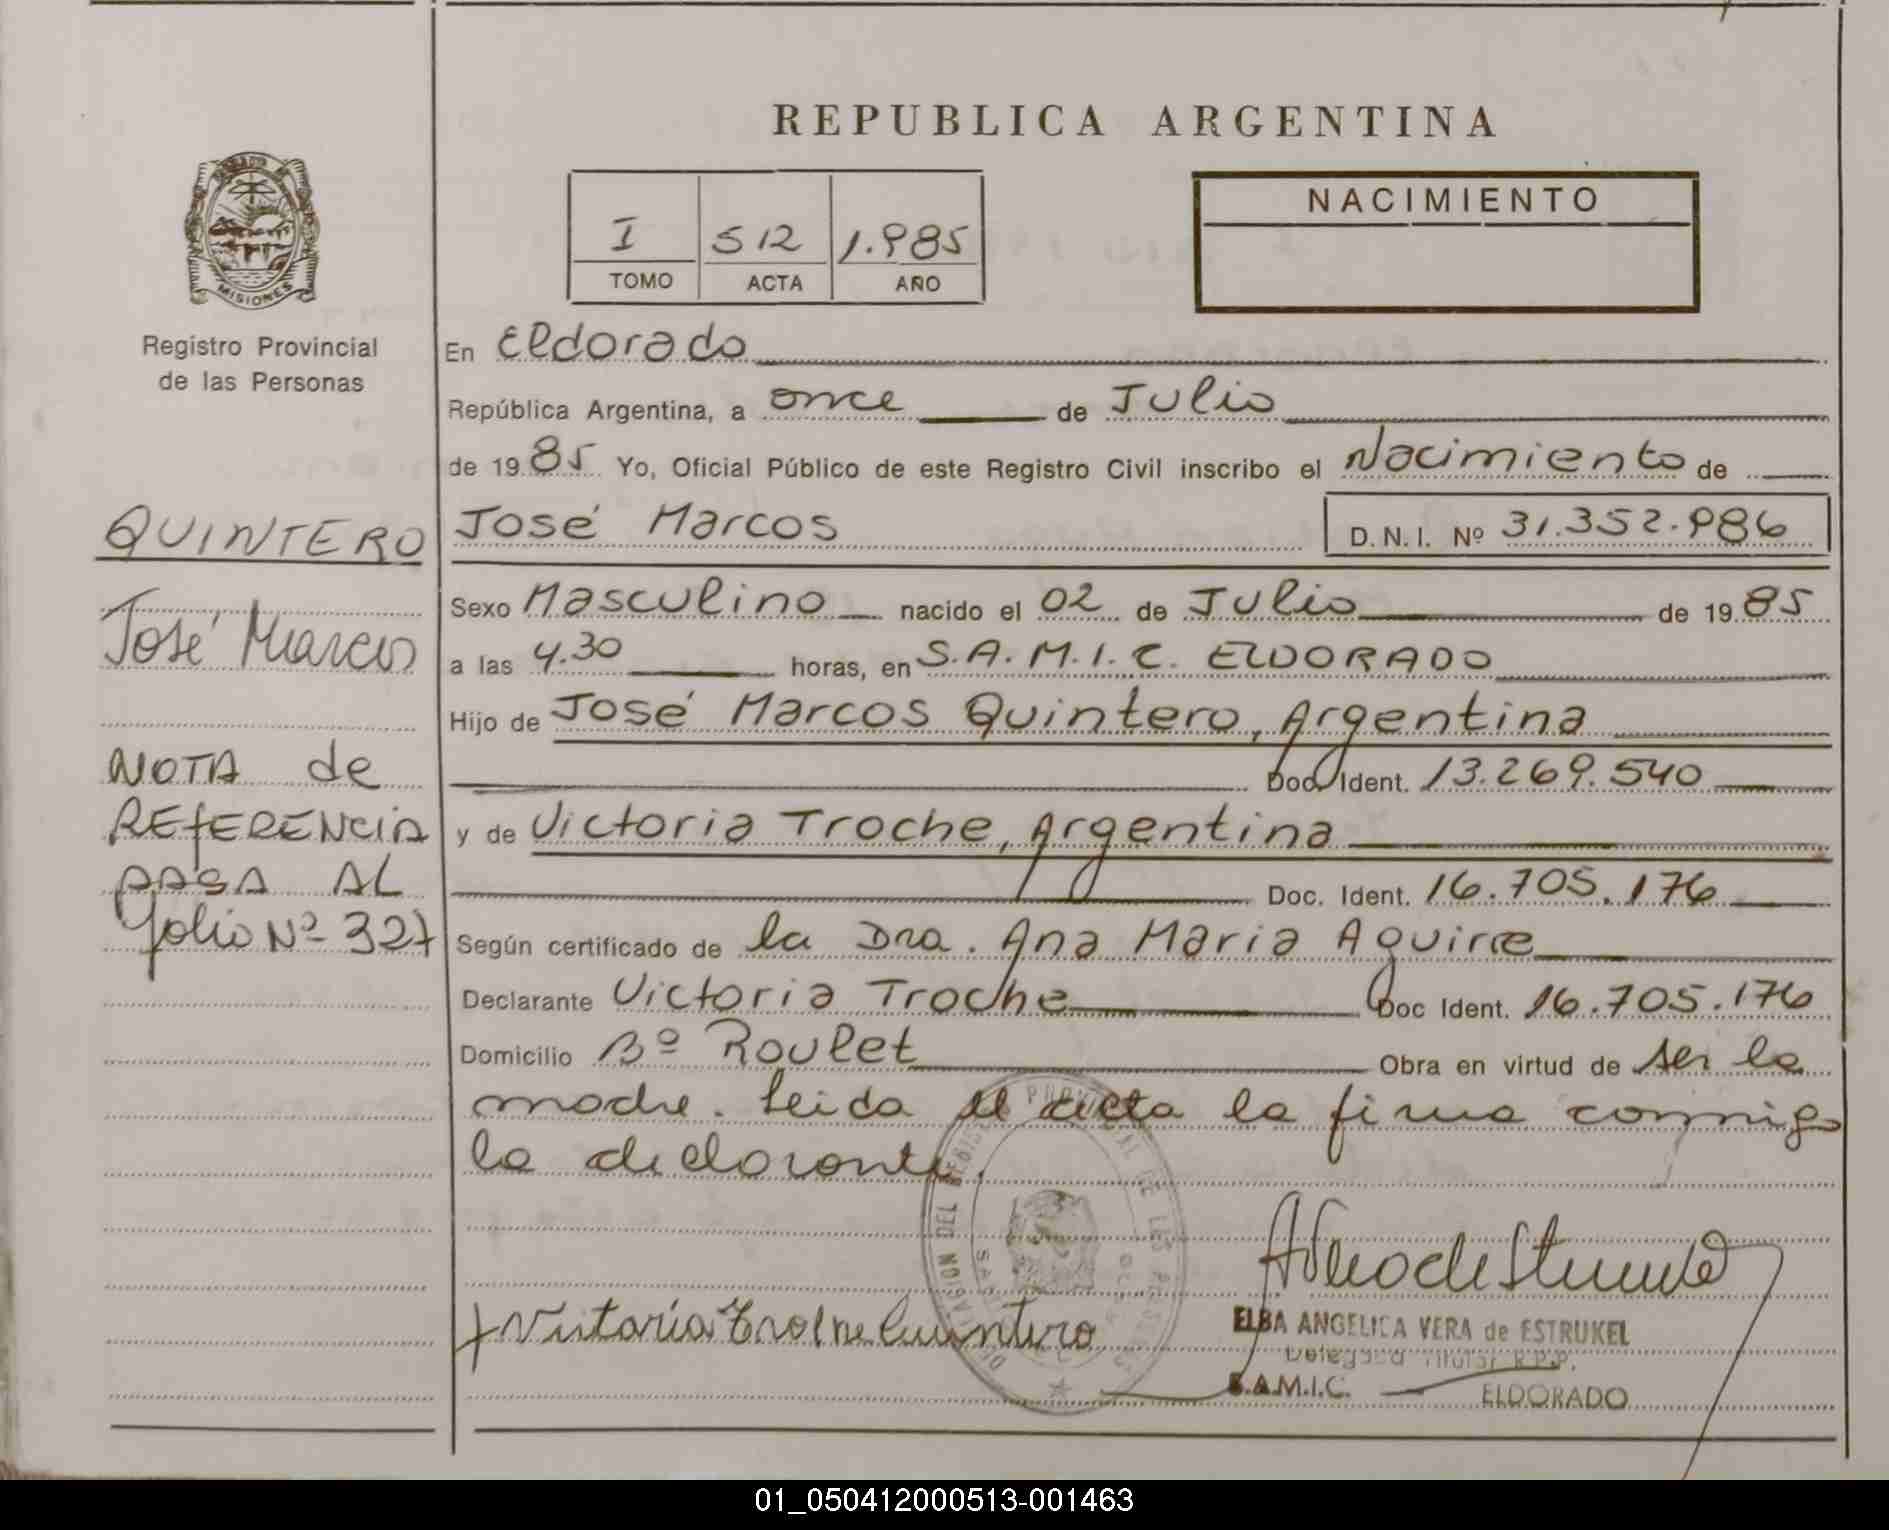 REPUBLICA ARGENTINA
MISIONES
Registro Provincial
de las Personas
I 512 1.985
TOMO ACTA AÑO
NACIMIENTO
En Eldorado
República Argentina, a once de Julio
de 1985 Yo, Oficial Público de este Registro Civil inscribo el Nacimiento de
QUINTERO
José Marcos
José Marcos D.N.I. Nº 31.352.986
Sexo Masculino nacido el 02 de Julio de 1985
a las 4.30 horas, en S.A.M.I.C. ELDORADO
Hijo de José Marcos Quintero, Argentina
Doc. Ident. 13.269.540
y de Victoria Troche, Argentina
Doc. Ident. 16.705.176
NOTA de
REFERENCIA
PASA AL
folio Nº 327
Según certificado de la Dra. Ana Maria Aguirre
Declarante Victoria Troche Doc Ident. 16.705.176
Domicilio Bº Roulet Obra en virtud de ser la
madre. Leida el acta la firma conmigo
la declarante.
Victoria Troche Quintero
ELBA ANGELICA VERA de ESTRUKEL
Delegada Titular R.P.P.
S.A.M.I.C. ELDORADO
01_050412000513-001463